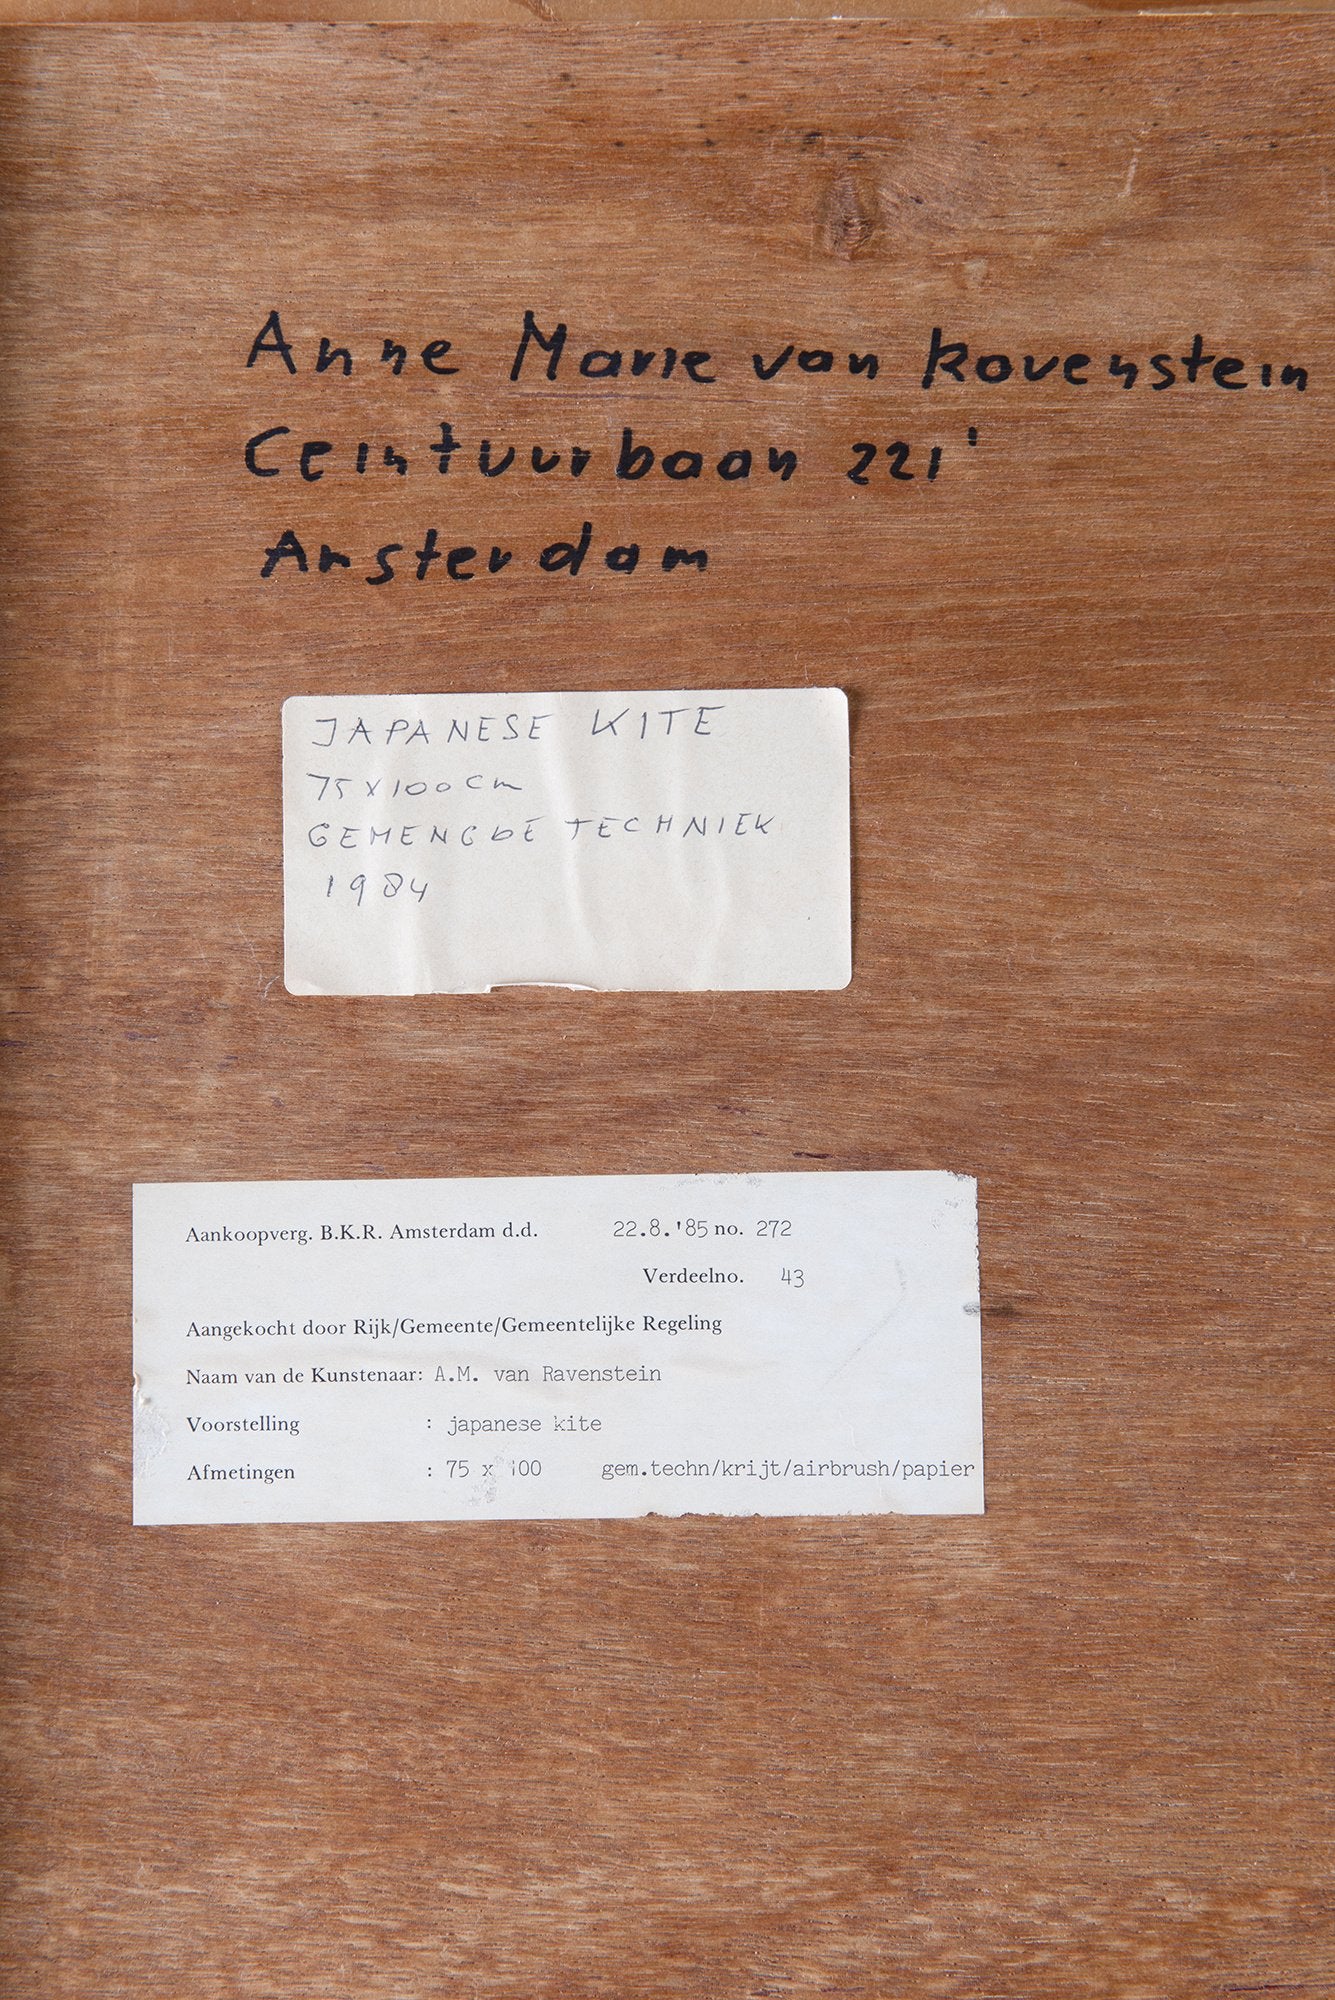 Anne Marie van Ravenstein
Ceintuurbaan 221'
Amsterdam
JAPANESE KITE
75 x 100 cm
GEMENGDE TECHNIEK
1984
Aankoopverg. B.K.R. Amsterdam d.d. 22.8.'85 no. 272
Verdeelno. 43
Aangekocht door Rijk/Gemeente/Gemeentelijke Regeling
Naam van de Kunstenaar: A.M. van Ravenstein
Voorstelling : japanese kite
Afmetingen : 75 x 100 gem.techn/krijt/airbrush/papier